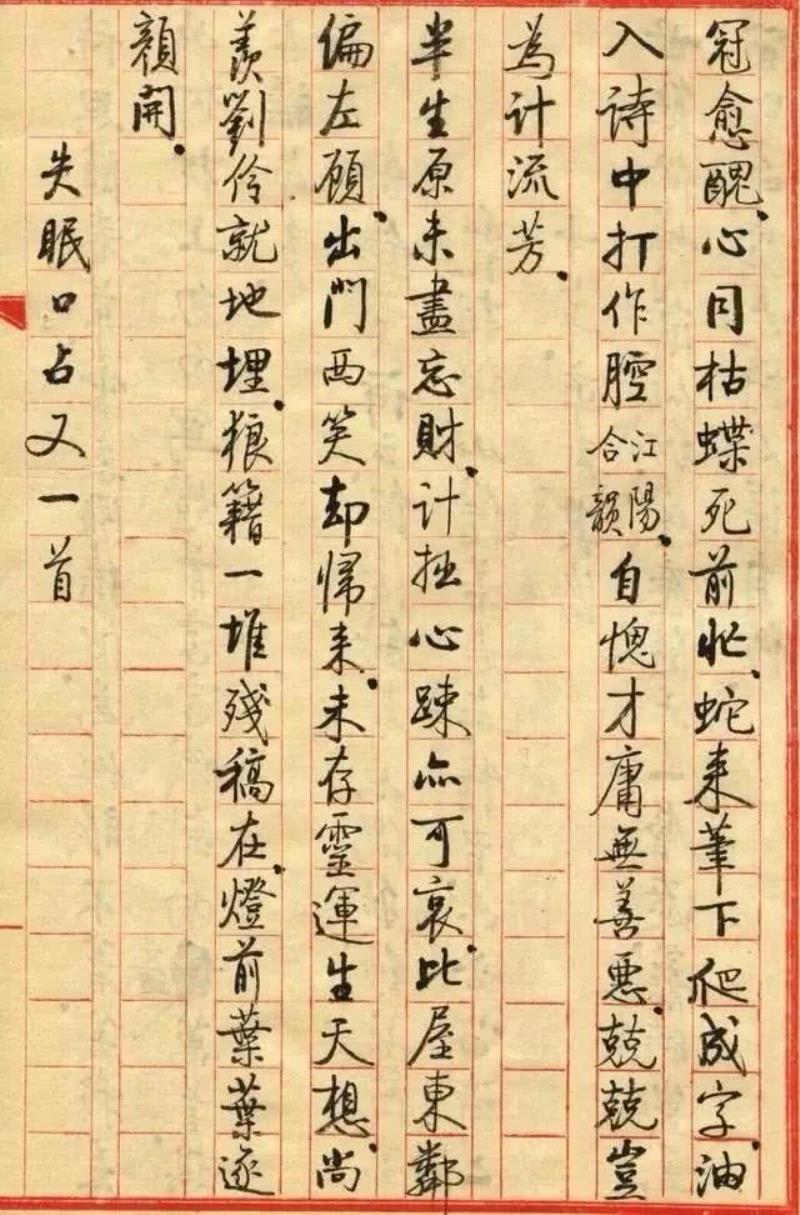 冠愈醜.心同枯蝶死前忙.蛇来筆下爬成字.油
入诗中打作腔江陽合韻.自愧才庸無善惡.兢兢豈
為计流芳.
半生原未盡忘財.计拙心疎亦可哀.比屋東鄰
偏左顧.出門西笑却歸来.未存靈運生天想.尚
羨劉伶就地埋.狼籍一堆殘稿在.燈前葉葉逐
顏開.
失眠口占又一首